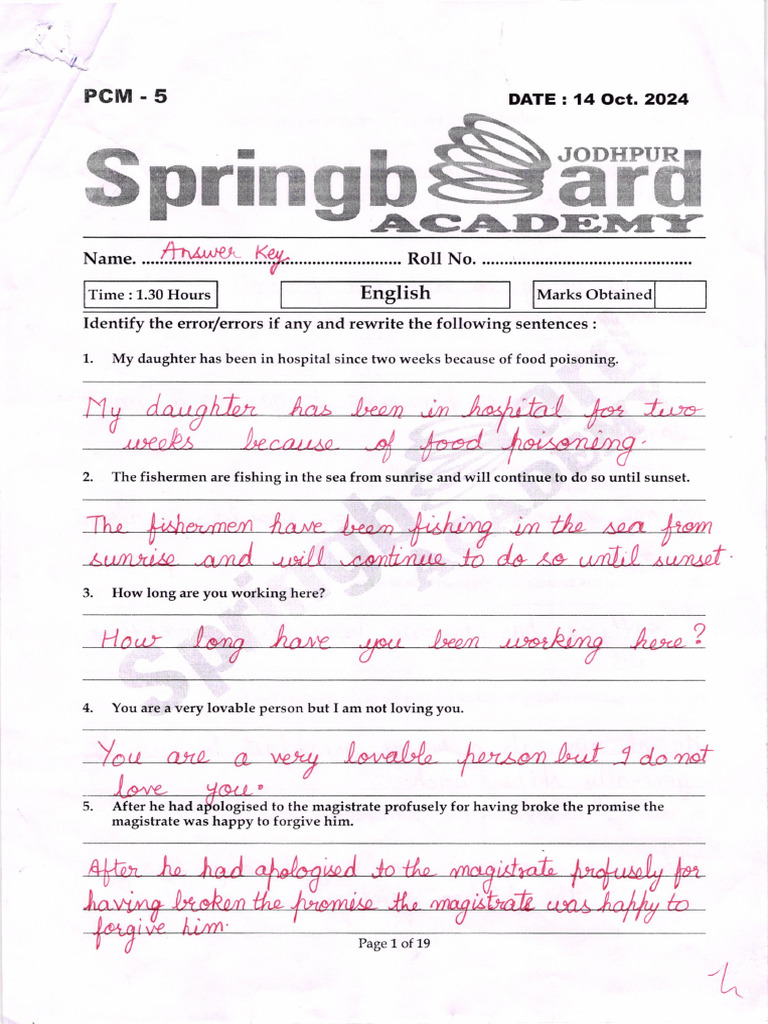 PCM - 5
DATE : 14 Oct. 2024
Springboard
JODHPUR
ACADEMY
Name. ............................................... Roll No. ...........................................
Answer Key
Time : 1.30 Hours
English
Marks Obtained
Identify the error/errors if any and rewrite the following sentences :
1. My daughter has been in hospital since two weeks because of food poisoning.
My daughter has been in hospital for two
weeks because of food poisoning.
2. The fishermen are fishing in the sea from sunrise and will continue to do so until sunset.
The fishermen have been fishing in the sea from
sunrise and will continue to do so until sunset.
3. How long are you working here?
How long have you been working here?
4. You are a very lovable person but I am not loving you.
You are a very lovable person but I do not
love you.
5. After he had apologised to the magistrate profusely for having broke the promise the
magistrate was happy to forgive him.
After he had apologised to the magistrate profusely for
having broken the promise the magistrate was happy to
forgive him.
Page 1 of 19